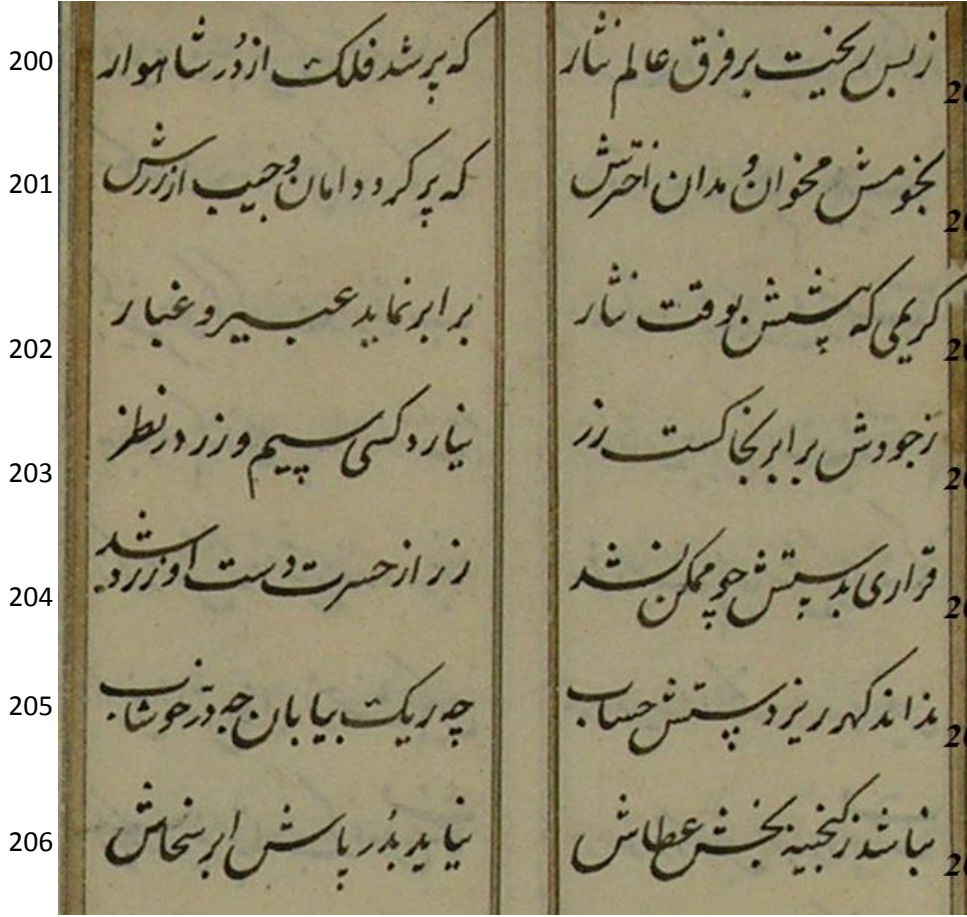 200 ز بس ریخت بر فرق عالم نثار که پر شد فلک از دُر شاهوار
201 نجومش مخوان و مدان اخترش که پر کرد دامان و جیب از زرش
202 کریمی که پیشش بوقت نثار برابر نماید عبیر و غبار
203 ز جودش برابر بخاکست زر نیارد کسی سیم و زر در نظر
204 قراری بدستش چو ممکن نشد زر از حسرت دست او زرد شد
205 نداند کهر ریز دستش حساب چه ریک بیابان چه دُرّ خوشاب
206 ز کنجینه بخش عطاش نیاید بدُر پاش ابر سخاش